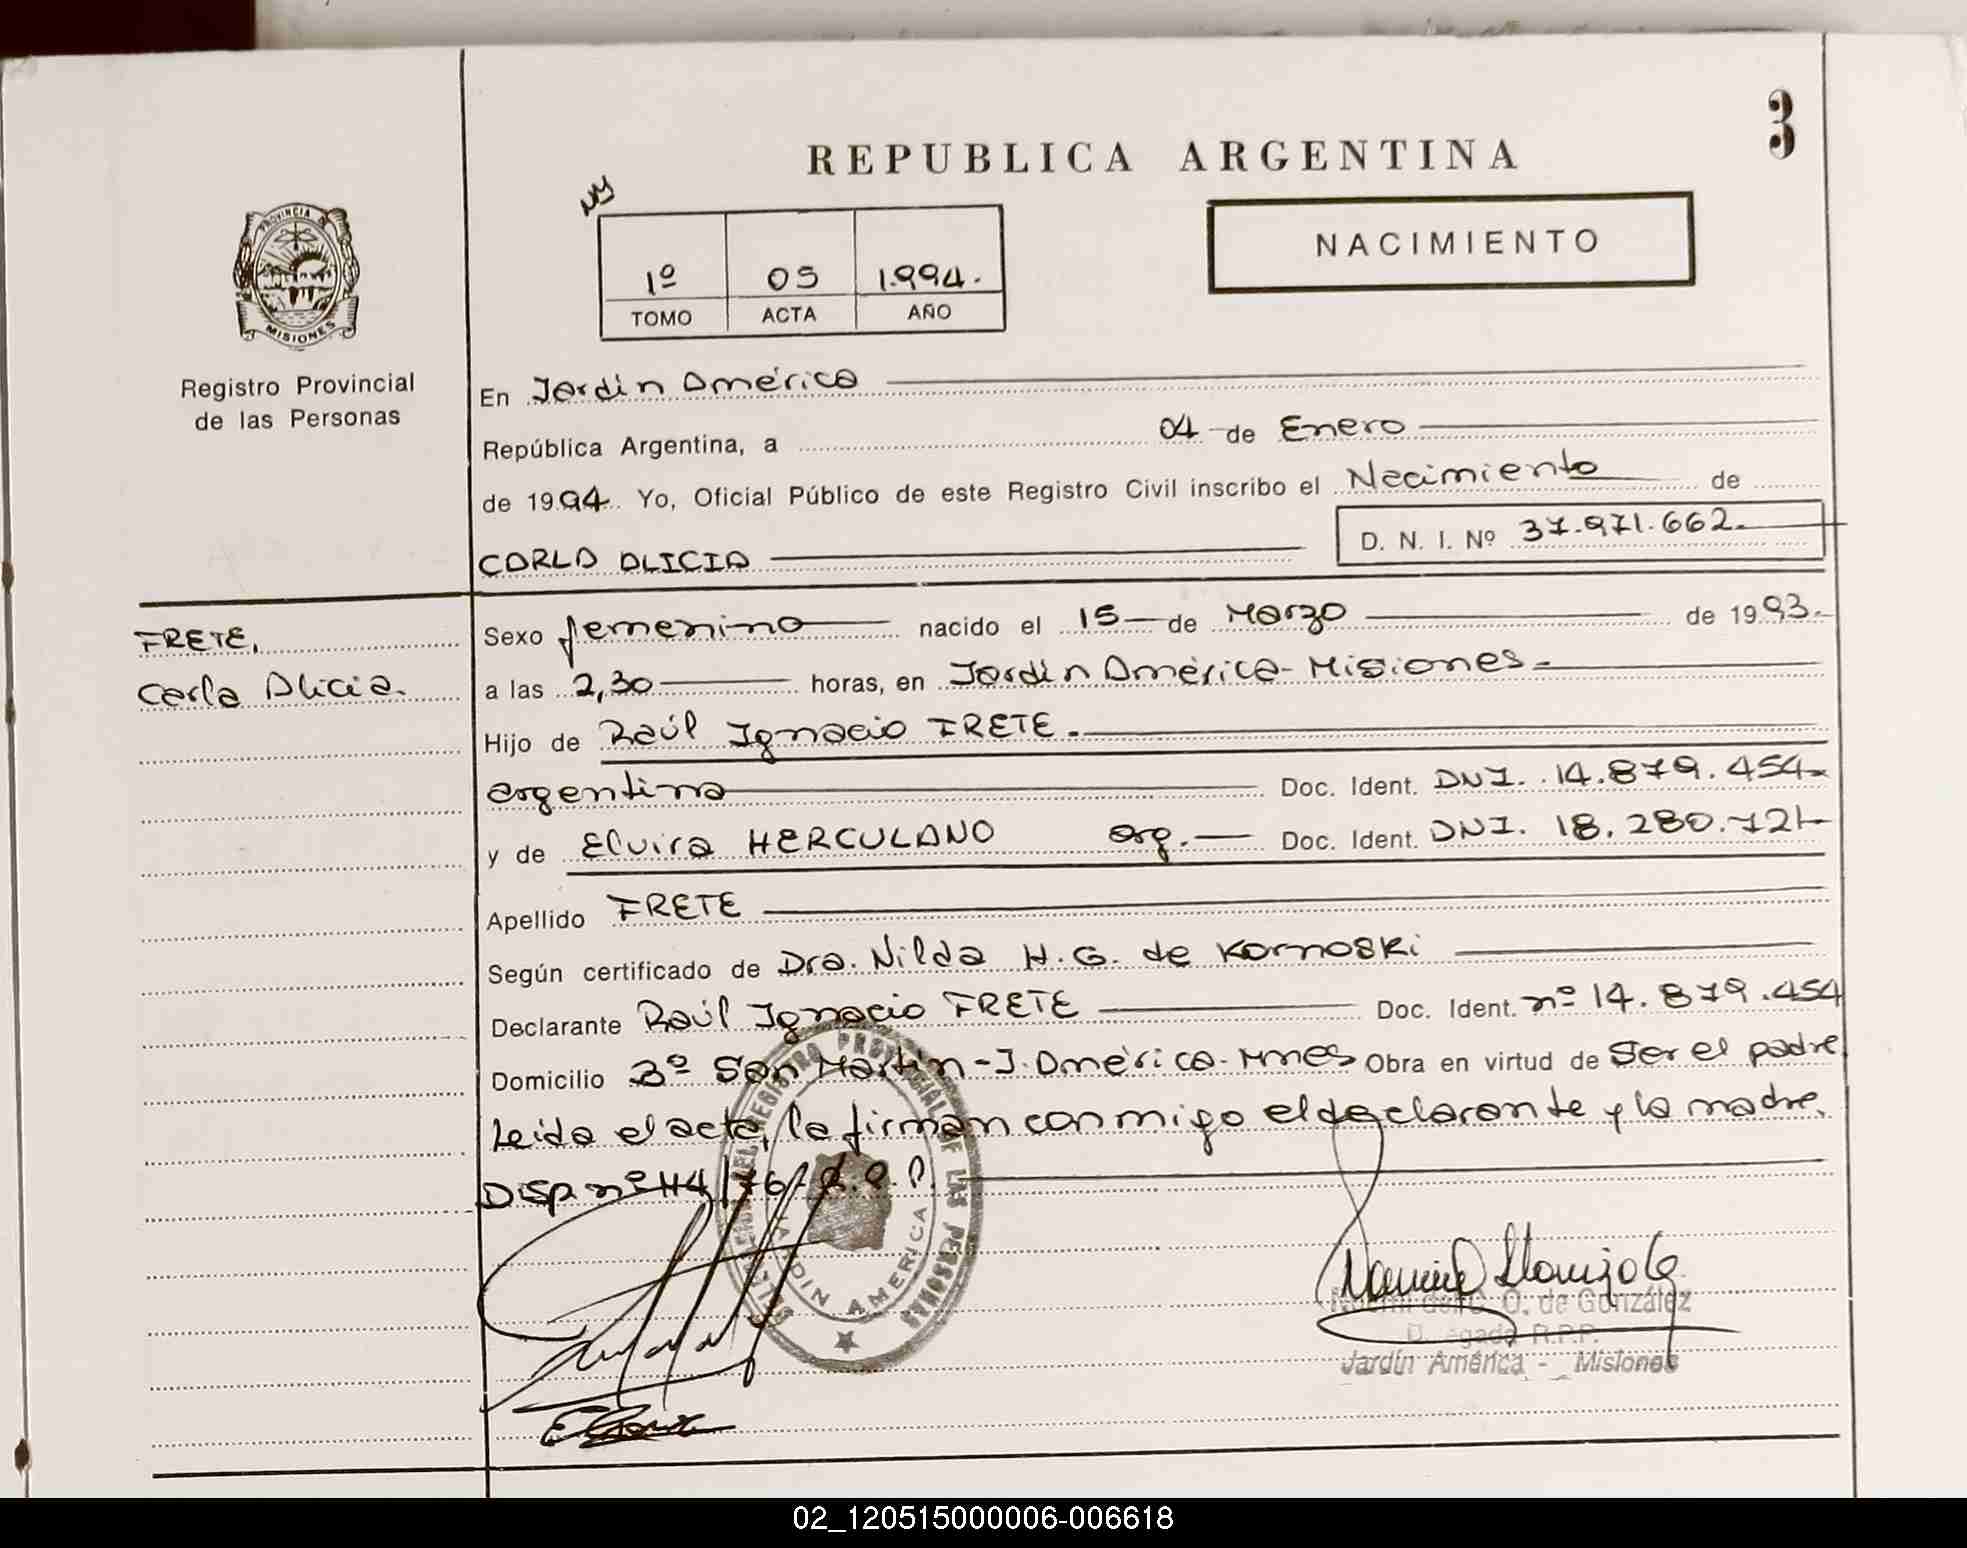 3
REPUBLICA ARGENTINA
NACIMIENTO
PROVINCIA DE
MISIONES
Registro Provincial
de las Personas
1º 05 1.994.
TOMO ACTA AÑO
En Jardín América
República Argentina, a 04 de Enero
de 1994. Yo, Oficial Público de este Registro Civil inscribo el Nacimiento de
CARLA ALICIA D. N. I. Nº 37.971.662.
FRETE,
Carla Alicia.
Sexo femenino nacido el 15 de Marzo de 1993.
a las 2,30 horas, en Jardín América - Misiones.
Hijo de Raúl Ignacio FRETE.
argentina Doc. Ident. DNI. 14.879.454
y de Elvira HERCULANO arg. Doc. Ident. DNI. 18.280.721
Apellido FRETE
Según certificado de Dra. Nilda H. G. de Kornoski
Declarante Raúl Ignacio FRETE Doc. Ident. nº 14.879.454
Domicilio Bº San Martín - J. América - Mnes Obra en virtud de Ser el padre
Leída el acta, la firman conmigo el declarante y la madre.
Disp. nº 114/76. R.P.P.
REGISTRO PROVINCIAL DE LAS PERSONAS
JARDIN AMERICA
O. de González
Delegada R.P.P.
Jardín América - Misiones
02_120515000006-006618